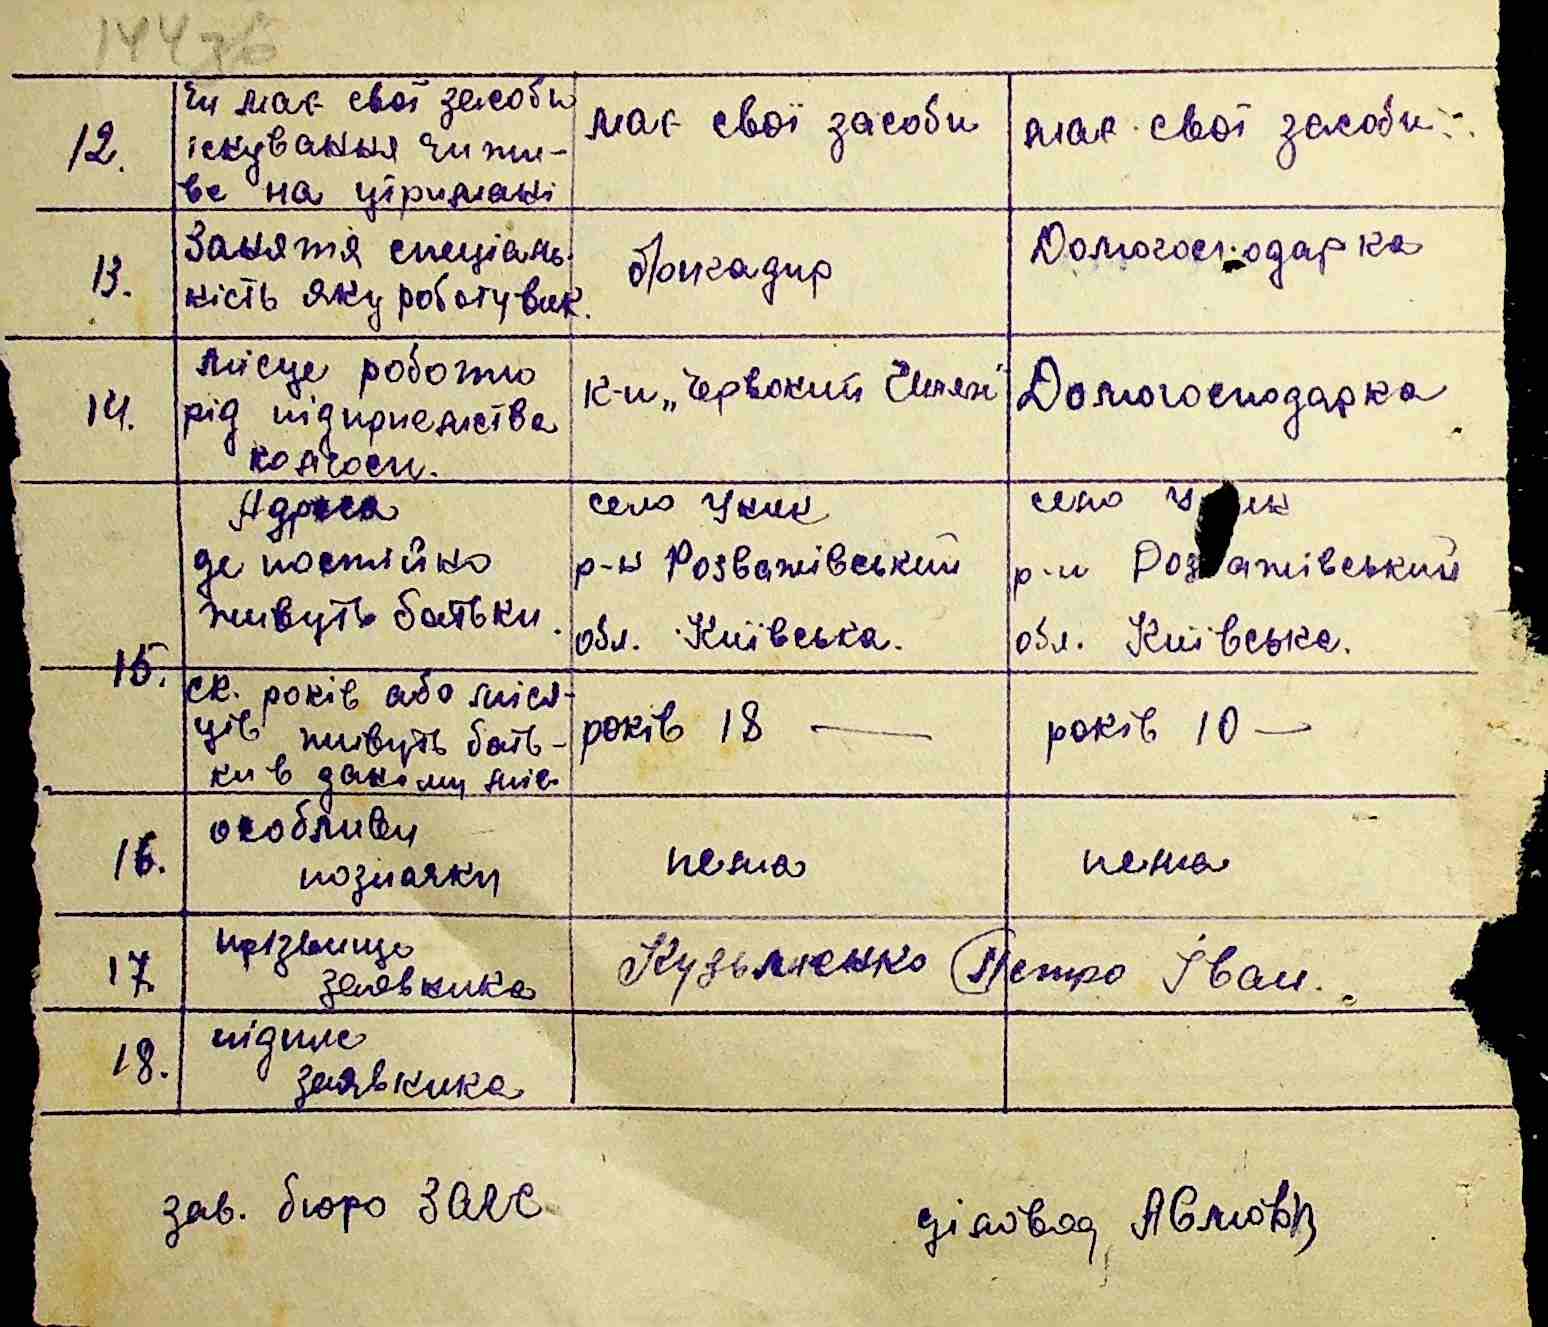 144 зб
12.
чи має свої засоби
існування чи жи-
ве на утримані
має свої засоби
має свої засоби
13.
Заняття спеціаль-
ність яку роботу вик.
бригадир
Домогосподарка
14.
місце роботи
рід підприємства
колгосп.
к-п „Червоний Шлях"
Домогосподарка
15.
Адреса
де постійно
живуть батьки.
село Уник
р-н Розважівський
обл. Київська.
село У ик
р-н Роз ажівський
обл. Київська.
ск. років або міся-
ців живуть бать-
ки в даному міс.
років 18 —
років 10 —
16.
особливи
познаяки
нема
нема
17.
прізвище
заявника
Кузьменко Петро Іван.
18.
підпис
заявника
зав. бюро ЗАГС
діловод